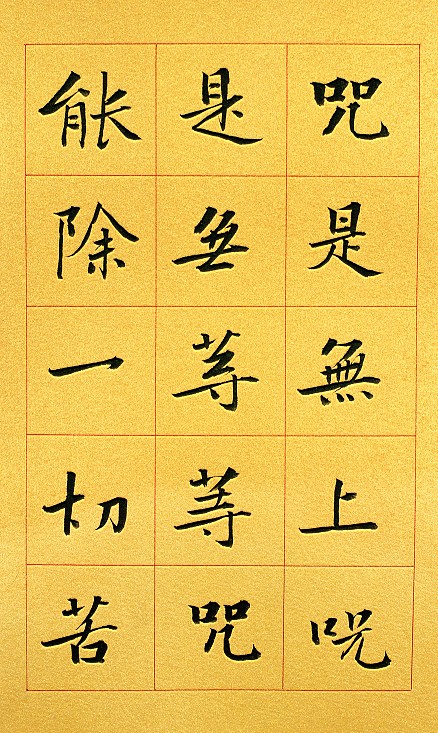 咒是無上呪
是無等等咒
能除一切苦